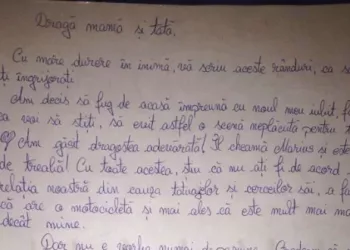 Dragă mamă și tată.
Cu mare durere în inimă, vă scriu aceste rânduri, ca să
ți îngrijorați
Am decis să fug de acasă împreună cu noul meu iubit, f
ca voi să știți, să evit astfel o scenă neplăcută pentru t
Am găsit dragostea adevărată! Îl cheamă Marius și este
de treabă! Cu toate acestea, știu că nu ați fi de acord
relația noastră din cauza tatuajelor și cerceilor săi, a fa
că are o motocicletă și mai ales că este mult mai ma
decât mine.
Dar nu e vorba numai de